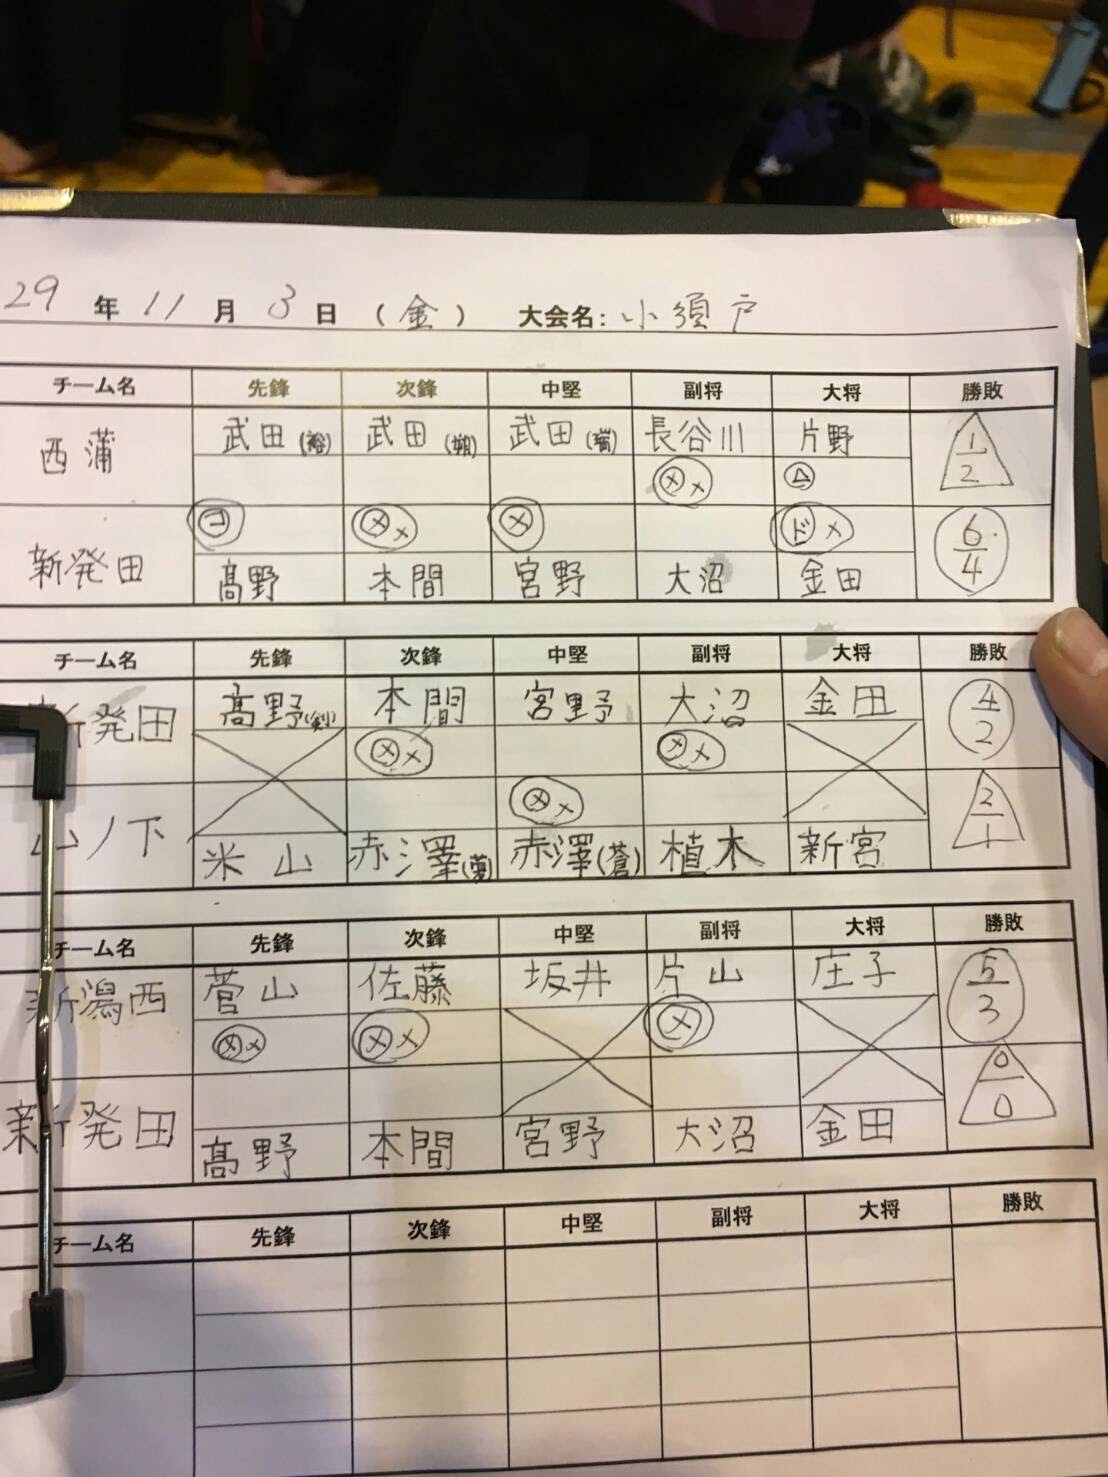 29 年 11 月 3 日 (金) 大会名: 小須戸
チーム名 先鋒 次鋒 中堅 副将 大将 勝敗
西蒲 武田(裕) 武田(朔) 武田 長谷川 片野 1/2
㋱メ △
㋙ ㋱メ ㋱ ㋣゙メ 6/4
新発田 髙野 本間 宮野 大沼 金田
チーム名 先鋒 次鋒 中堅 副将 大将 勝敗
新発田 髙野(剣) 本間 宮野 大沼 金田 4/2
㋱メ ㋱メ
㋱メ 2/1
山ノ下 米山 赤澤(夢) 赤澤(蒼) 植木 新宮
チーム名 先鋒 次鋒 中堅 副将 大将 勝敗
新潟西 菅山 佐藤 坂井 片山 庄子 5/3
㋱メ ㋱メ ㋱
0/0
新発田 髙野 本間 宮野 大沼 金田
チーム名 先鋒 次鋒 中堅 副将 大将 勝敗